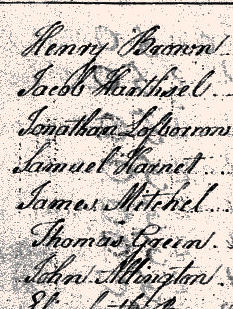 Henry Brown
Jacob Harthsel
Jonathan Lofborrons
Samuel Harnet
James Mitchel
Thomas Green
John Allington